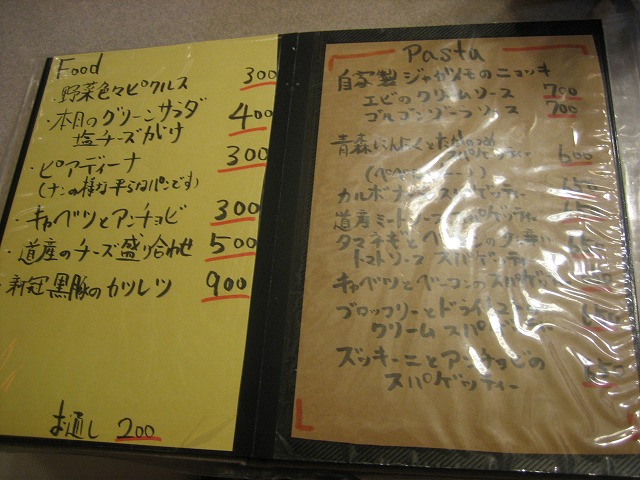 Food
・野菜色々ピクルス 300
・本日のグリーンサラダ 400
塩チーズがけ
・ピアディーナ 300
(ナンの様な平らなパンです)
・キャベツとアンチョビ 300
・道産のチーズ盛り合わせ 500
・新冠黒豚のカツレツ 900
お通し 200
Pasta
自家製ジャガイモのニョッキ
エビのクリームソース 700
ゴルゴンゾーラソース 700
青森にんにくとたかのつめ
スパゲッティー 600
カルボナーラスパゲッティー 650
道産ミートソーススパゲッティー
タマネギとベーコンの
トマトソース スパゲッティー
キャベツとベーコンのスパゲッティー
ブロッコリーとドライトマト
クリームスパゲッティー
ズッキーニとアンチョビの
スパゲッティー